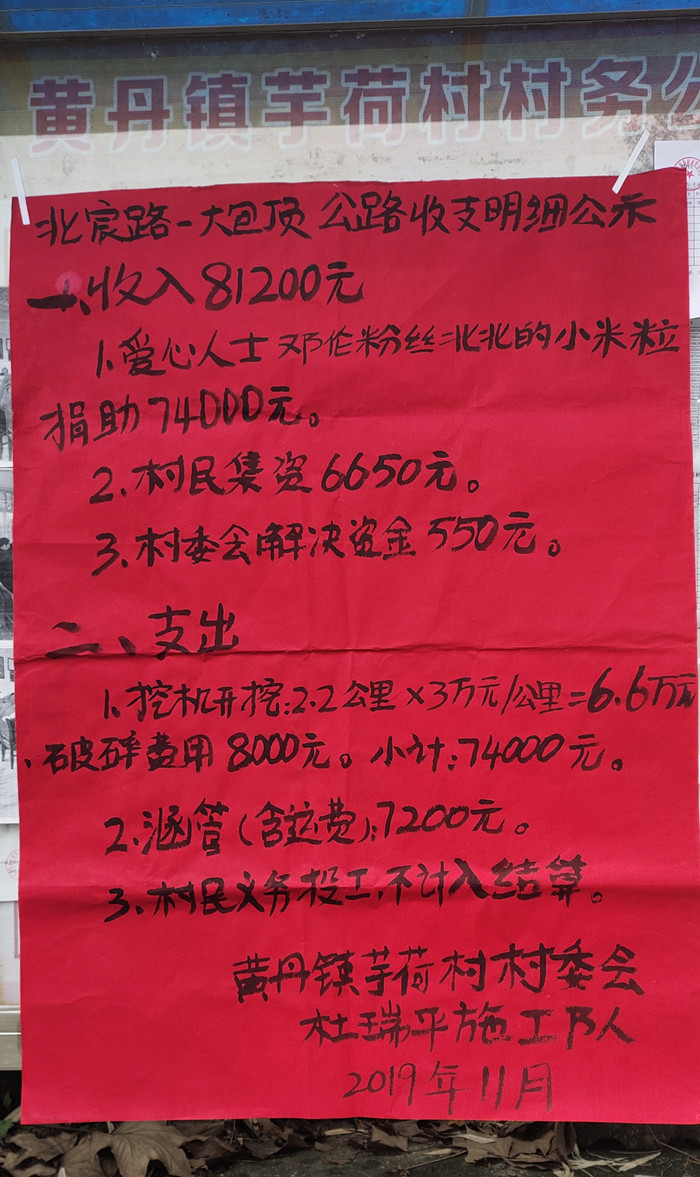 黄丹镇芋荷村村务公
北宸路-大包顶 公路收支明细公示
一、收入81200元
1.爱心人士 邓伦粉丝北北的小米粒
捐助74000元。
2、村民集资6650元。
3、村委会解决资金550元。
二、支出
1、挖机开挖:2.2公里×3万元/公里=6.6万元
、破碎费用8000元。小计:74000元。
2、涵管(含运费):7200元。
3、村民义务投工,不计入结算。
黄丹镇芋荷村村委会
杜瑞平施工队
2019年11月